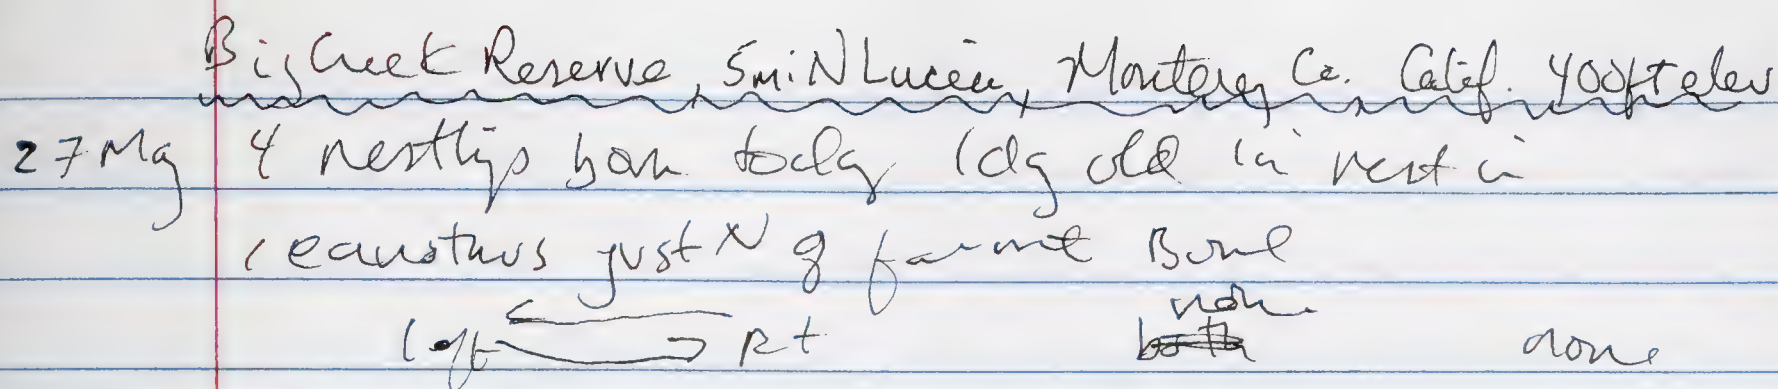 Big Creek Reserve, 5 mi N Lucia, Monterey Co. Calif. 400 ft elev
27 May 4 nestlings born today 1 day old in nest in
ceanothus just N of favorite Bowl
none
left Rt both none